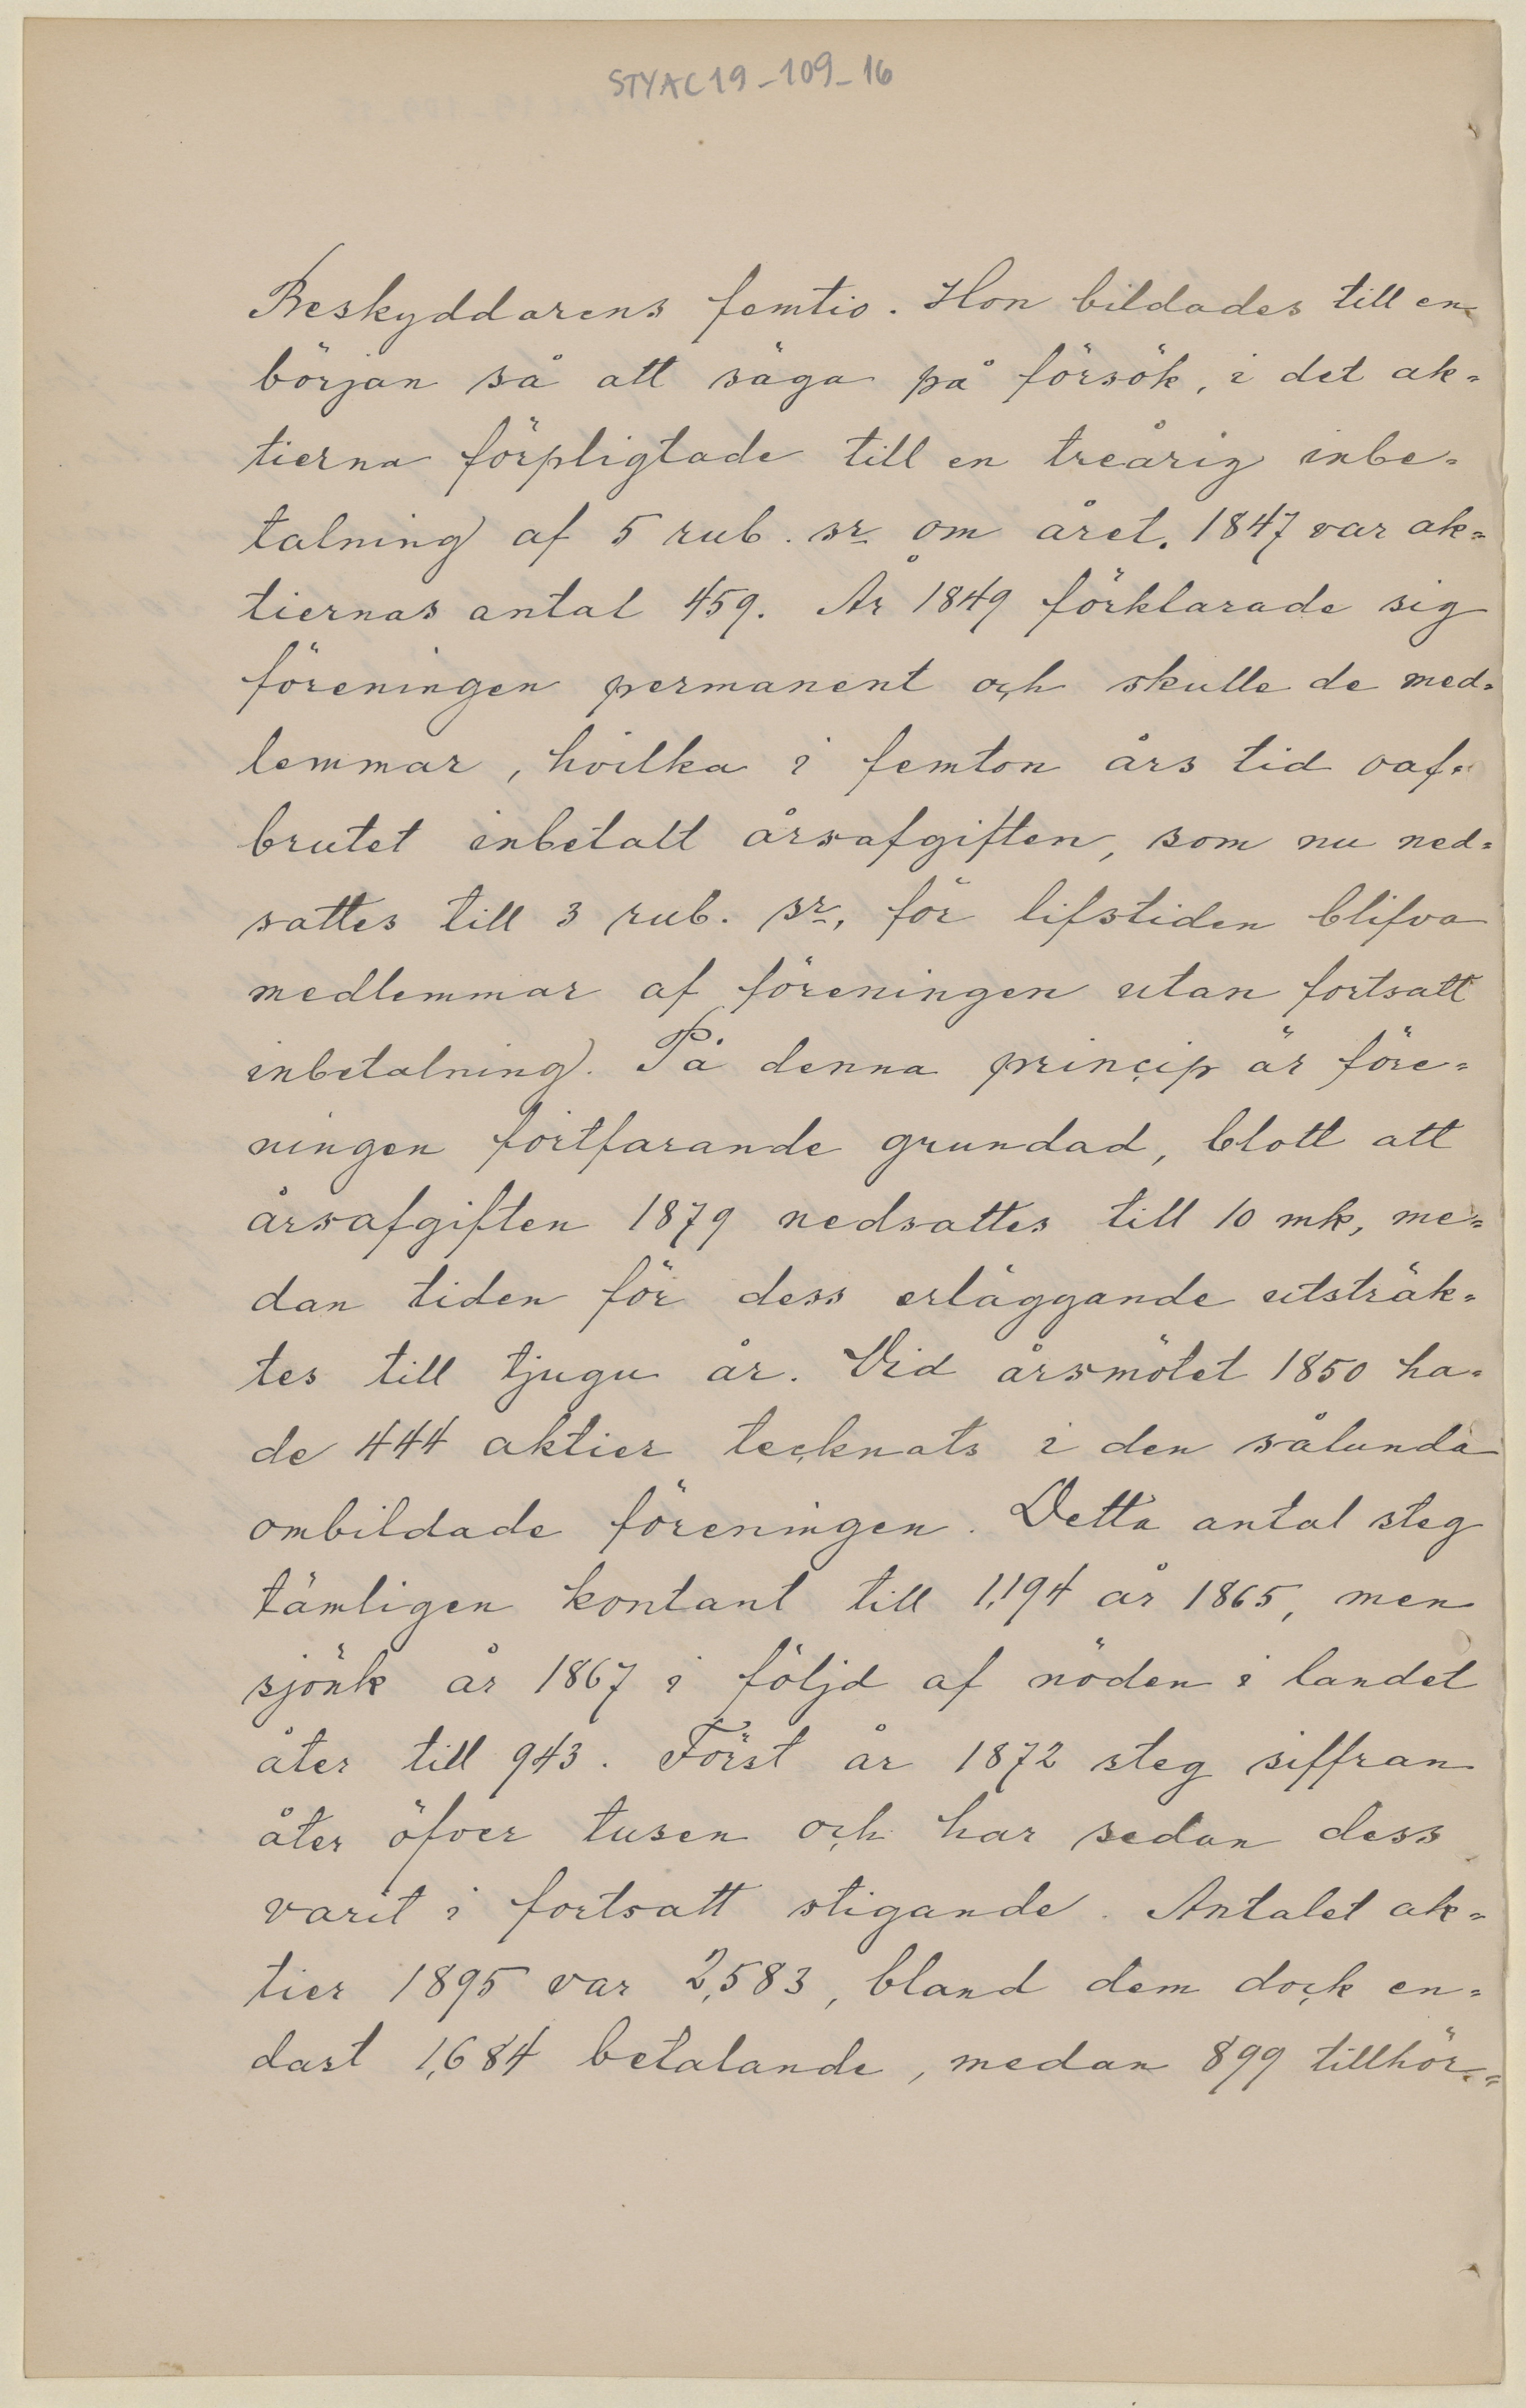 STYAC19-109-16
Beskyddarens femtio. Hon bildades till en
början så att säga på försök, i det ak=
tierna förpligtade till en treårig inbe=
talning af 5 rub. sr om året. 1847 var ak=
tiernas antal 459. År 1849 förklarade sig
föreningen permanent och skulle de med=
lemmar, hvilka i femton års tid oaf=
brutet inbetalt årsafgiften, som nu ned=
sattes till 3 rub. sr, för lifstiden blifva
medlemmar af föreningen utan fortsatt
inbetalning. På denna princip är före=
ningen fortfarande grundad, blott att
årsafgiften 1879 nedsattes till 10 mk, me=
dan tiden för dess erläggande utsträk=
tes till tjugu år. Vid årsmötet 1850 ha=
de 444 aktier tecknats i den sålunda
ombildade föreningen. Detta antal steg
tämligen kontant till 1,194 år 1865, men
sjönk år 1867 i följd af nöden i landet
åter till 943. Först år 1872 steg siffran
åter öfver tusen och har sedan dess
varit i fortsatt stigande. Antalet ak=
tier 1895 var 2,583, bland dem dock en=
dast 1,684 betalande, medan 899 tillhör=